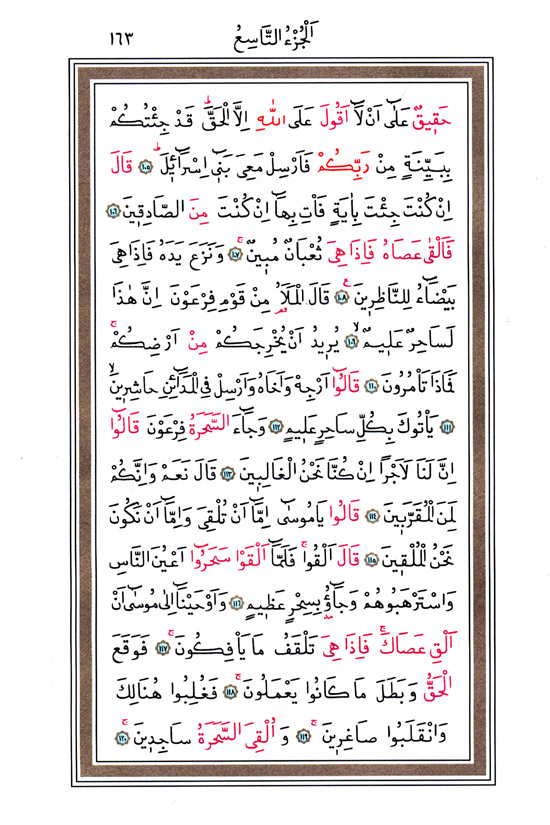 اَلْجُزْءُ التَّاسِعُ ١٦٣
حَقٖيقٌ عَلٰٓى اَنْ لَٓا اَقُولَ عَلَى اللّٰهِ اِلَّا الْحَقَّؕ قَدْ جِئْتُكُمْ
بِبَيِّنَةٍ مِنْ رَبِّكُمْ فَاَرْسِلْ مَعِىَ بَنٖٓى اِسْرَٓائٖلَؕ ﴿١٠٥﴾ قَالَ
اِنْ كُنْتَ جِئْتَ بِاٰيَةٍ فَاْتِ بِهَٓا اِنْ كُنْتَ مِنَ الصَّادِقٖينَ ﴿١٠٦﴾
فَاَلْقٰى عَصَاهُ فَاِذَا هِىَ ثُعْبَانٌ مُبٖينٌۚ ﴿١٠٧﴾ وَنَزَعَ يَدَهُ فَاِذَا هِىَ
بَيْضَٓاءُ لِلنَّاظِرٖينَࣖ ﴿١٠٨﴾ قَالَ الْمَلَاُ مِنْ قَوْمِ فِرْعَوْنَ اِنَّ هٰذَا
لَسَاحِرٌ عَلٖيمٌۙ ﴿١٠٩﴾ يُرٖيدُ اَنْ يُخْرِجَكُمْ مِنْ اَرْضِكُمْۚ
فَمَاذَا تَاْمُرُونَ ﴿١١٠﴾ قَالُٓوا اَرْجِهْ وَاَخَاهُ وَاَرْسِلْ فِى الْمَدَٓائِنِ حَاشِرٖينَۙ
﴿١١١﴾ يَاْتُوكَ بِكُلِّ سَاحِرٍ عَلٖيمٍ ﴿١١٢﴾ وَجَٓاءَ السَّحَرَةُ فِرْعَوْنَ قَالُٓوا
اِنَّ لَنَا لَاَجْرًا اِنْ كُنَّا نَحْنُ الْغَالِبٖينَ ﴿١١٣﴾ قَالَ نَعَمْ وَاِنَّكُمْ
لَمِنَ الْمُقَرَّبٖينَ ﴿١١٤﴾ قَالُوا يَا مُوسٰٓى اِمَّٓا اَنْ تُلْقِىَ وَاِمَّٓا اَنْ نَكُونَ
نَحْنُ الْمُلْقٖينَ ﴿١١٥﴾ قَالَ اَلْقُواۚ فَلَمَّٓا اَلْقَوْا سَحَرُٓوا اَعْيُنَ النَّاسِ
وَاسْتَرْهَبُوهُمْ وَجَٓاؤُ بِسِحْرٍ عَظٖيمٍ ﴿١١٦﴾ وَاَوْحَيْنَٓا اِلٰى مُوسٰٓى اَنْ
اَلْقِ عَصَاكَۚ فَاِذَا هِىَ تَلْقَفُ مَا يَاْفِكُونَۚ ﴿١١٧﴾ فَوَقَعَ
الْحَقُّ وَبَطَلَ مَا كَانُوا يَعْمَلُونَۚ ﴿١١٨﴾ فَغُلِبُوا هُنَالِكَ
وَانْقَلَبُوا صَاغِرٖينَۚ ﴿١١٩﴾ وَاُلْقِىَ السَّحَرَةُ سَاجِدٖينَۚ ﴿١٢٠﴾